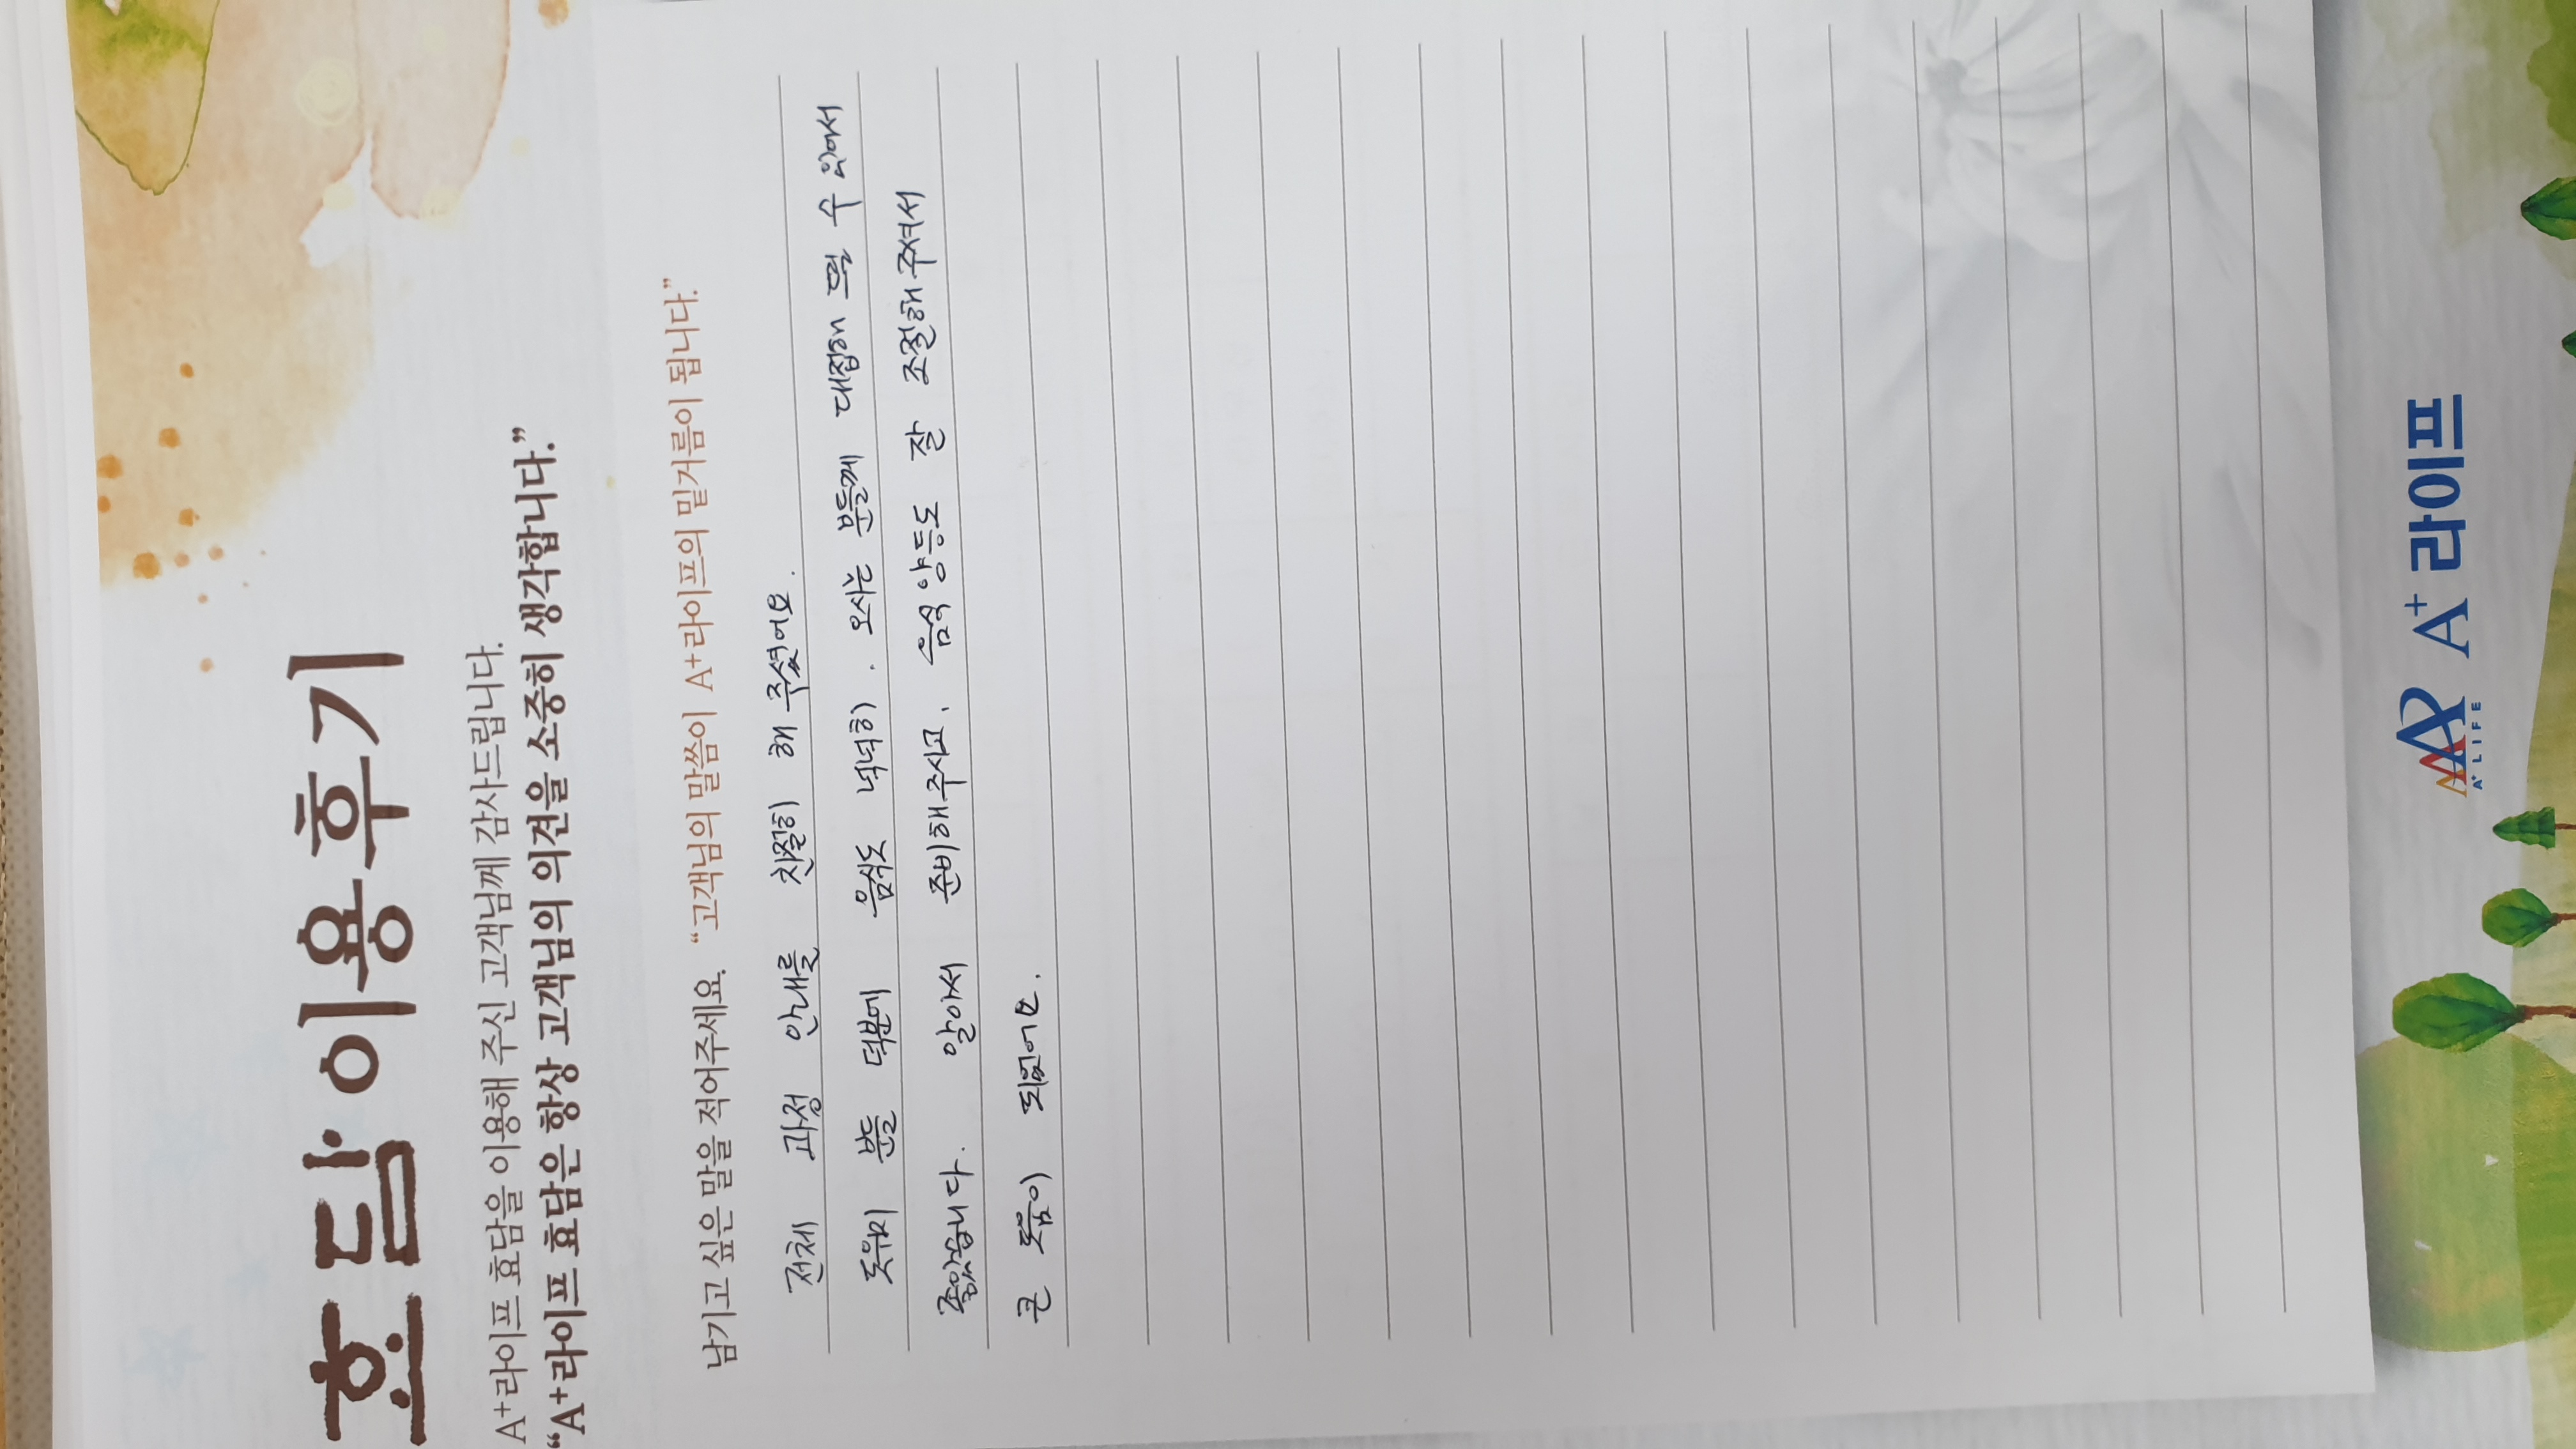 효담 이용후기
A⁺라이프 효담을 이용해 주신 고객님께 감사드립니다.
“A⁺라이프 효담은 항상 고객님의 의견을 소중히 생각합니다.”
남기고 싶은 말을 적어주세요. “고객님의 말씀이 A⁺라이프의 밑거름이 됩니다.”
전체 과정 안내를 친절히 해 주셨어요.
도우미 분들 덕분에 음식도 넉넉히. 오시는 분들께 대접해 드릴 수 있어서
좋았습니다. 알아서 준비해주시고, 음식 양 등도 잘 조절해주셔서
큰 도움이 되었어요.
A⁺ LIFE
A⁺ 라이프